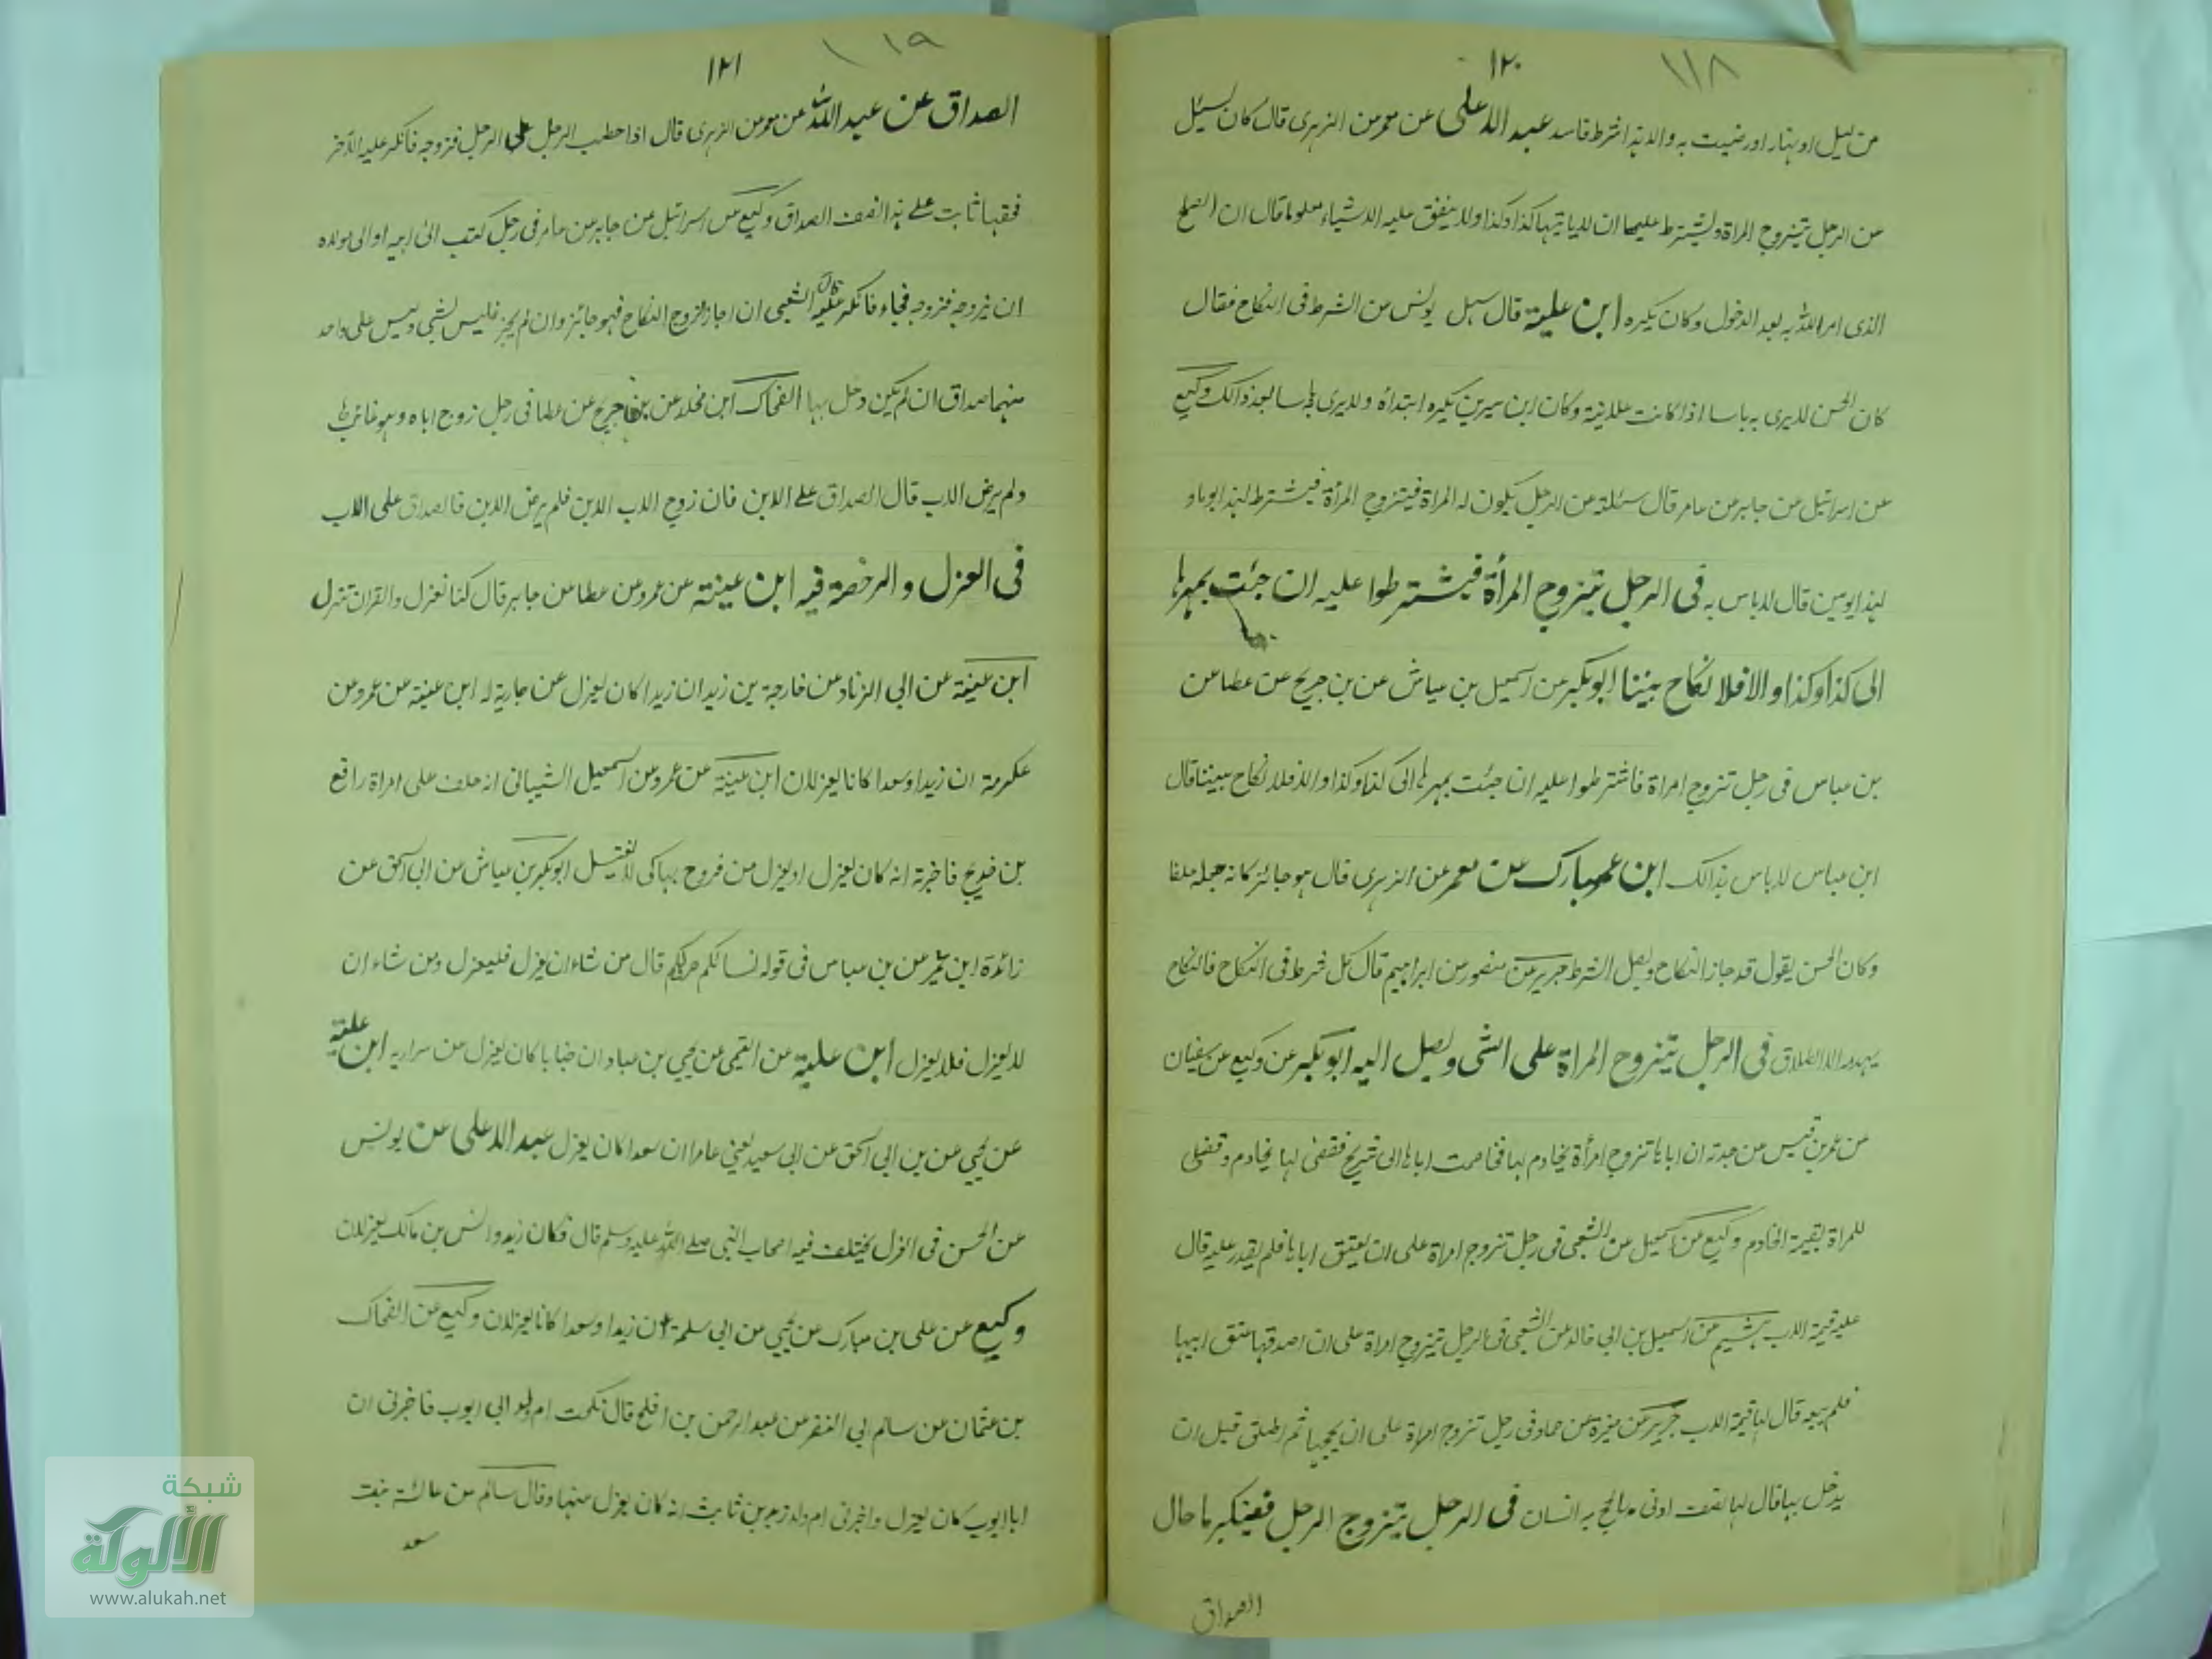 ١٢٠
١١٨
من ليل او نهار اورضيت به والا فهذا شرط فاسد عبد الاعلى عن معمر عن الزهرى قال كان يسئل
عن الرجل يتزوج المراة ويشترط عليها ان لا ياتيها كذا وكذا ولا ينفق عليه الا شياء معلوما قال ان الصلح
الذى امر الله به بعد الدخول وكان يكره ابن علية قال سئل يونس عن الشرط فى النكاح فقال
كان الحسن لا يرى به باسا اذا كانت علانية وكان ابن سيرين يكره ابتداه ولا يرى باسا بعد ذالك وكيع
عن اسرائيل عن جابر عن عامر قال سئلته عن الرجل يكون له المراة فيتزوج المرأة فيشترط لهذا يوما و
لهذا يومين قال لا باس به فى الرجل يتزوج المرأة فيشترطوا عليه ان جئت بمهرها
الى كذا وكذا والا فلا نكاح بيننا ابو بكر عن اسمعيل بن عياش عن بن جريج عن عطا عن
بن عباس فى رجل تزوج امراة فاشترطوا عليه ان جئت بمهرها الى كذا وكذا والا فلا نكاح بيننا قال
ابن عباس لا باس بذالك ابن مبارك عن معمر عن الزهرى قال هو جائز كانه جعله حلفا
وكان الحسن يقول قد جاز النكاح وبطل الشرط جرير عن منصور عن ابراهيم قال كل شرط فى النكاح فالنكاح
يهدمه الا الطلاق فى الرجل يتزوج المراة على الشى ويصل اليه ابو بكر عن وكيع عن سفيان
عن عمر بن قيس عن جدته ان اباها تزوج امرأة بخادم لها فخاصمت اباها الى شريح فقضى لها بخادم وقضى
للمراة بقيمة الخادم وكيع عن اسمعيل عن الشعبى فى رجل تزوج امراة على ان يعتق اباها فلم يقدر عليه قال
عليه قيمة الاب هشيم عن اسمعيل بن ابى خالد عن الشعبى فى الرجل يتزوج امراة على ان اصدقها عتق ابيها
فلم يبعه قال لها قيمة الاب جرير عن مغيرة عن حماد فى رجل تزوج امراة على ان يحجها ثم طلق قبل ان
يدخل بها قال لها نصف ادنى ما يحج به انسان فى الرجل يتزوج الرجل فينكر ما حال
الصداق
١٢١
١١٩
الصداق عن عبد الاعلى عن معمر عن الزهرى قال اذا خطب الرجل على الرجل فزوجه فانكر عليه الاخر
فحقها ثابت على هذا نصف الصداق وكيع عن اسرائيل عن جابر عن عامر فى رجل كتب الى ابيه او الى مولاه
ان يزوجه فزوجه فجاء فانكر عليه قال الشعبى ان اجاز الزوج النكاح فهو جائز وان لم يجز فليس بشى وليس على واحد
منهما صداق ان لم يكن دخل بها الضحاك ابن مخلد عن بن جريج عن عطا فى رجل زوج اباه وهو غائب
ولم يرض الاب قال الصداق على الابن فان زوج الاب الابن فلم يرض الابن فالصداق على الاب
فى العزل والرخصة فيه ابن عينة عن عمرو عن عطا عن جابر قال كنا نعزل والقران تنزل
ابن عينة عن ابى الزناد عن خارجة بن زيد ان زيدا كان يعزل عن جارية له ابن عينة عن عمرو عن
عكرمة ان زيدا وسعدا كانا يعزلان ابن عينة عن عمرو عن اسمعيل الشيبانى انه حلف على امراة رافع
بن خديج فاخبرته انه كان يعزل ابو بكر بن عياش عن ابى اسحق عن
زائدة ابن عمير عن بن عباس فى قوله نسائكم حرثكم قال من شاء ان يعزل فليعزل ومن شاء ان
لا يعزل فلا يعزل ابن علية عن التيمى عن يحيى بن عباد ان خبابا كان يعزل عن سراريه ابن علية
عن يحيى عن بن ابى اسحق عن ابى سعيد يعنى عامرا ان سعدا كان يعزل عبد الاعلى عن يونس
عن الحسن فى العزل يختلف فيه اصحاب النبى صلى الله عليه وسلم قال فكان زيد وانس بن مالك يعزلان
وكيع عن على بن مبارك عن يحيى عن ابى سلمة ان زيدا وسعدا كانا يعزلان وكيع عن الضحاك
بن عثمان عن سالم ابى النضر عن عبد الرحمن بن افلح قال نكحت ام ولد ابى ايوب فاخبرتنى ان
ابا ايوب كان يعزل واخبرنى ام ولد زيد بن ثابت انه كان يعزل عنها وقال سالم عن عائشة بنت
سعد
شبكة
الألوكة
www.alukah.net